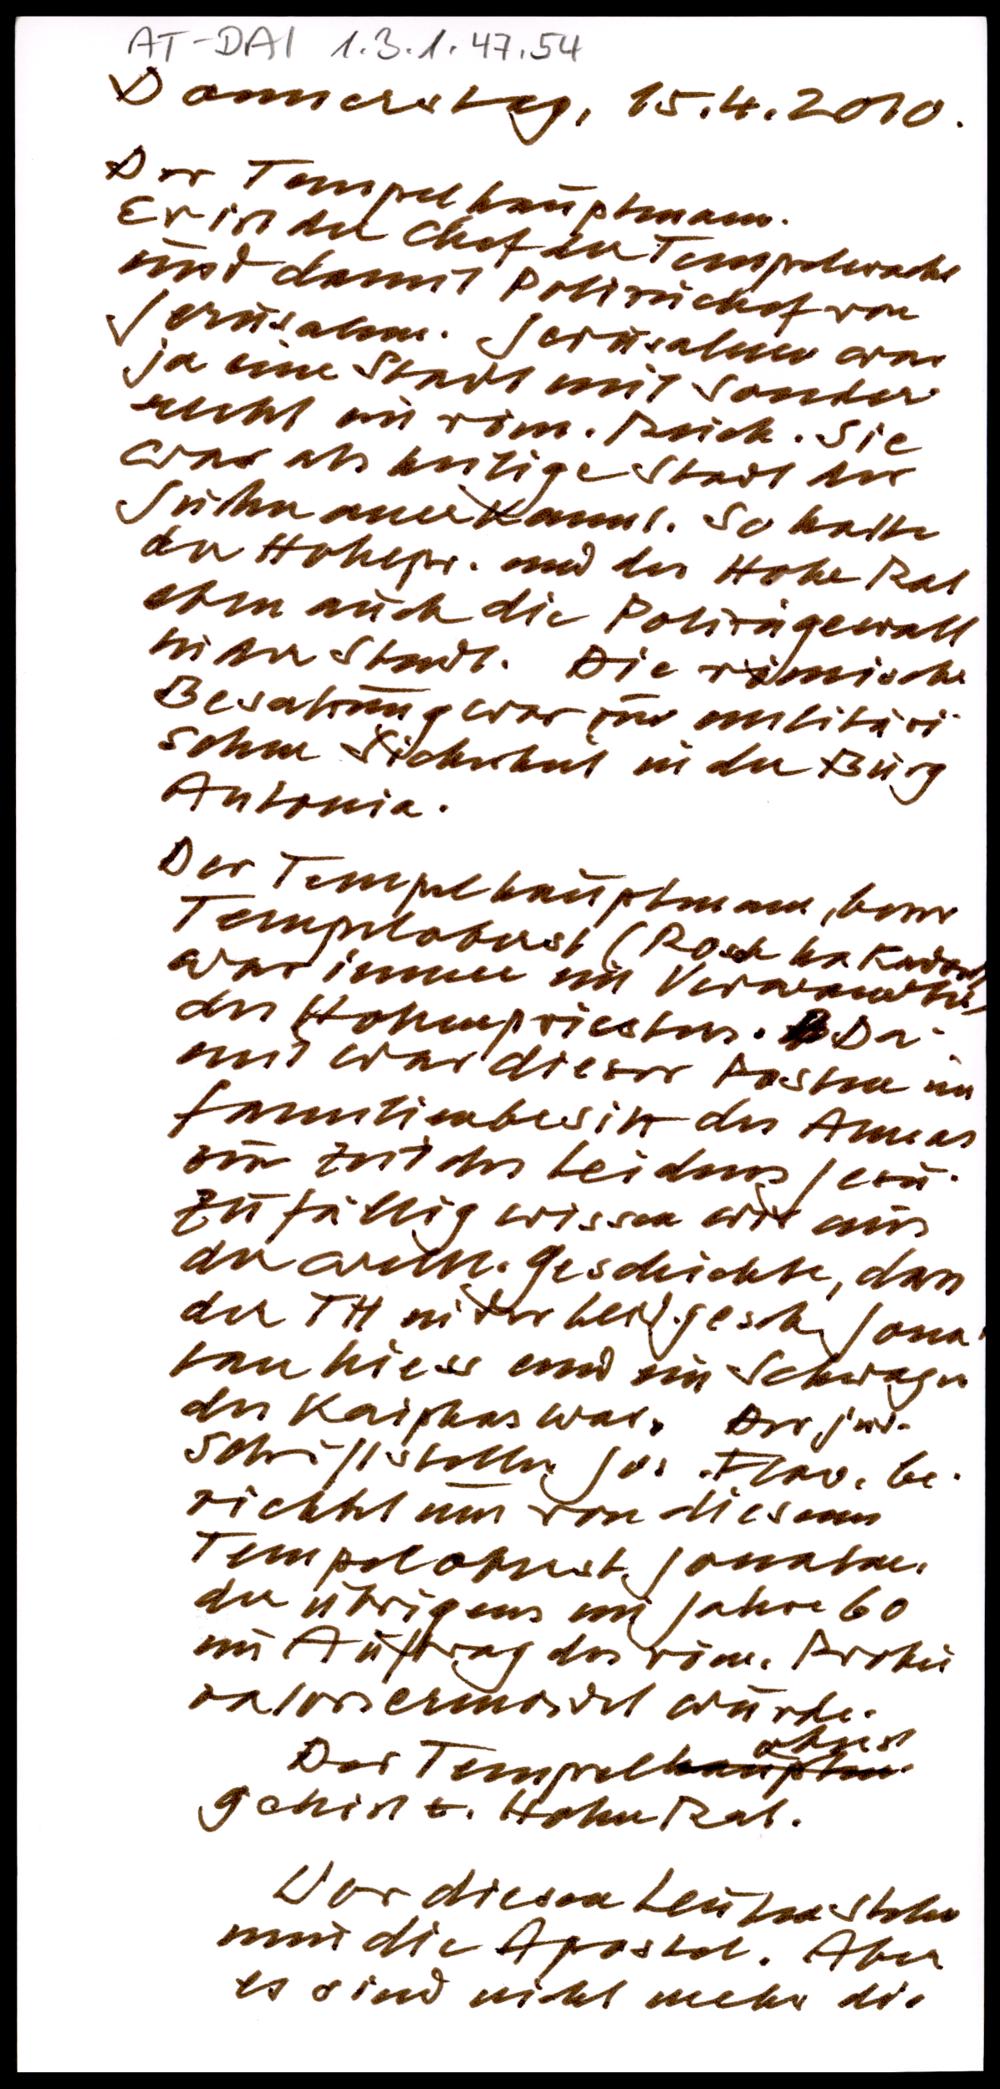 AT-DAI 1.3.1.47.54
Donnerstag, 15.4.2010.
Der Tempelhauptmann.
Er ist der Chef der Tempelwache
und damit Polizeichef von
Jerusalem. Jerusalem war
ja eine Stadt mit Sonder-
recht im röm. Reich. Sie
war als heilige Stadt der
Juden anerkannt. So hatte
der Hohepr. und der Hohe Rat
eben auch die Polizeigewalt
in der Stadt. Die römische
Besatzung war zur militäri-
schen Sicherheit in der Burg
Antonia.
Der Tempelhauptmann, besser
Tempeloberst (Rosch ha Kodesch)
war immer ein Verwandter
des Hohenpriesters. Da-
mit war dieser Posten im
Familienbesitz des Annas
zur Zeit des Leidens Jesu.
Zufällig wissen wir aus
der weltl. Geschichte, dass
der TH in der Leid.gesch. Jona-
tan hiess und ein Schwager
des Kaiphas war. Der jüd.
Schriftsteller Jos. Flav. be-
richtet nun von diesem
Tempeloberst Jonatan,
der übrigens im Jahre 60
im Auftrag des röm. Proku
rators ermordet wurde.
Der Tempelhauptm. oberst
gehört z. Hohen Rat.
Vor diesen Leuten stehen
nun die Apostel. Aber
es sind nicht mehr die